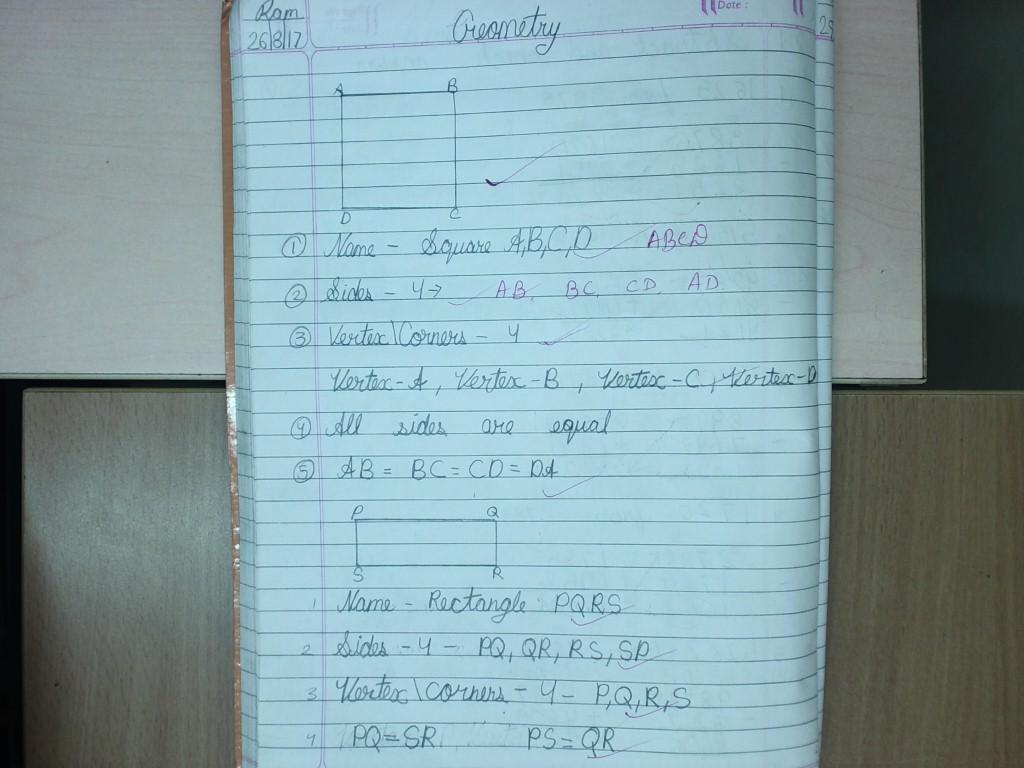 Ram
26/8/17
Geometry
Date :
A B
D C
① Name - Square A,B,C,D ABCD
② Sides - 4→ AB, BC, CD, AD
③ Vertex\Corners - 4
Vertex-A, Vertex-B, Vertex-C, Vertex-D
④ All sides are equal
⑤ AB = BC = CD = DA
P Q
S R
1 Name - Rectangle PQRS
2 Sides - 4 - PQ, QR, RS, SP
3 Vertex\corners - 4 - P,Q,R,S
4 PQ=SR PS=QR